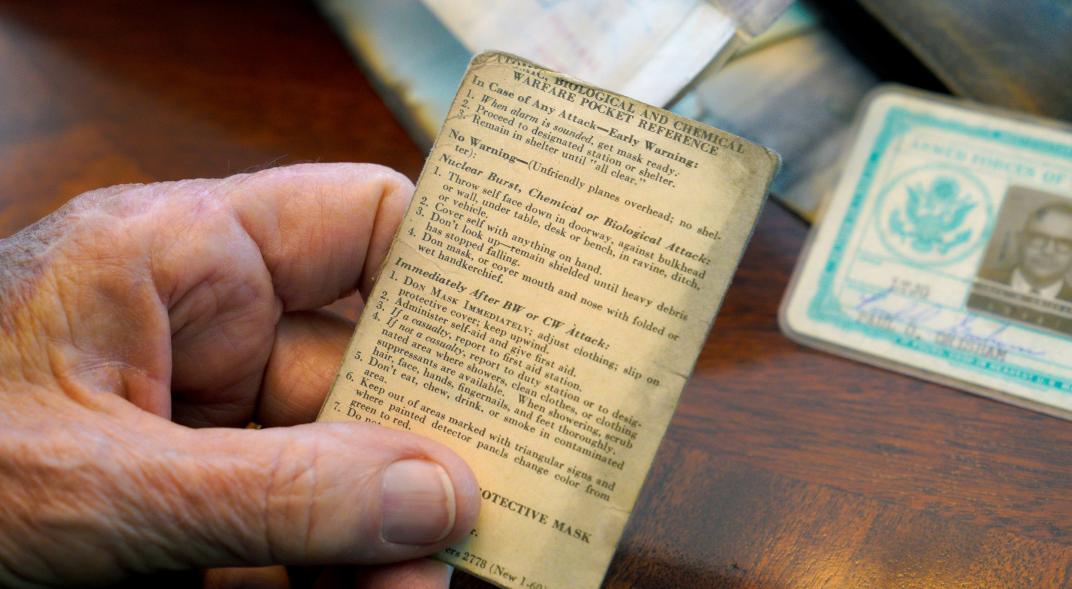 ATOMIC, BIOLOGICAL AND CHEMICAL
WARFARE POCKET REFERENCE
In Case of Any Attack—Early Warning:
1. When alarm is sounded, get mask ready.
2. Proceed to designated station or shelter.
3. Remain in shelter until "all clear."
No Warning—(Unfriendly planes overhead; no shel-
ter):
Nuclear Burst, Chemical or Biological Attack:
1. Throw self face down in doorway, against bulkhead
or wall, under table, desk or bench, in ravine, ditch,
or vehicle.
2. Cover self with anything on hand.
3. Don't look up—remain shielded until heavy debris
has stopped falling.
4. Don mask, or cover mouth and nose with folded or
wet handkerchief.
Immediately After BW or CW Attack:
1. DON MASK IMMEDIATELY; adjust clothing; slip on
protective cover; keep upwind.
2. Administer self-aid and give first aid.
3. If a casualty, report to first aid station.
4. If not a casualty, report to duty station or to desig-
nated area where showers, clean clothes, or clothing
suppressants are available. When showering, scrub
hair, face, hands, fingernails, and feet thoroughly.
5. Don't eat, chew, drink, or smoke in contaminated
area.
6. Keep out of areas marked with triangular signs and
where painted detector panels change color from
green to red.
7. Do
OTECTIVE MASK
ers 2778 (New 1-60)
ARMED FORCES OF